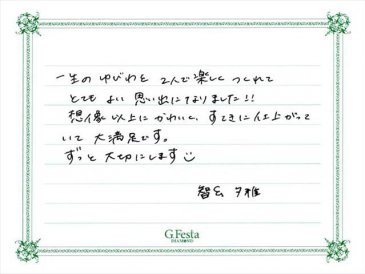 一生の ゆびわを 2人で楽しく つくれて
とても よい 思い出になりました!!
想像以上に かわいく、すてきに仕上がって
いて 大満足です。
ずっと 大切にします
智 夕雅
G.Festa
DIAMOND